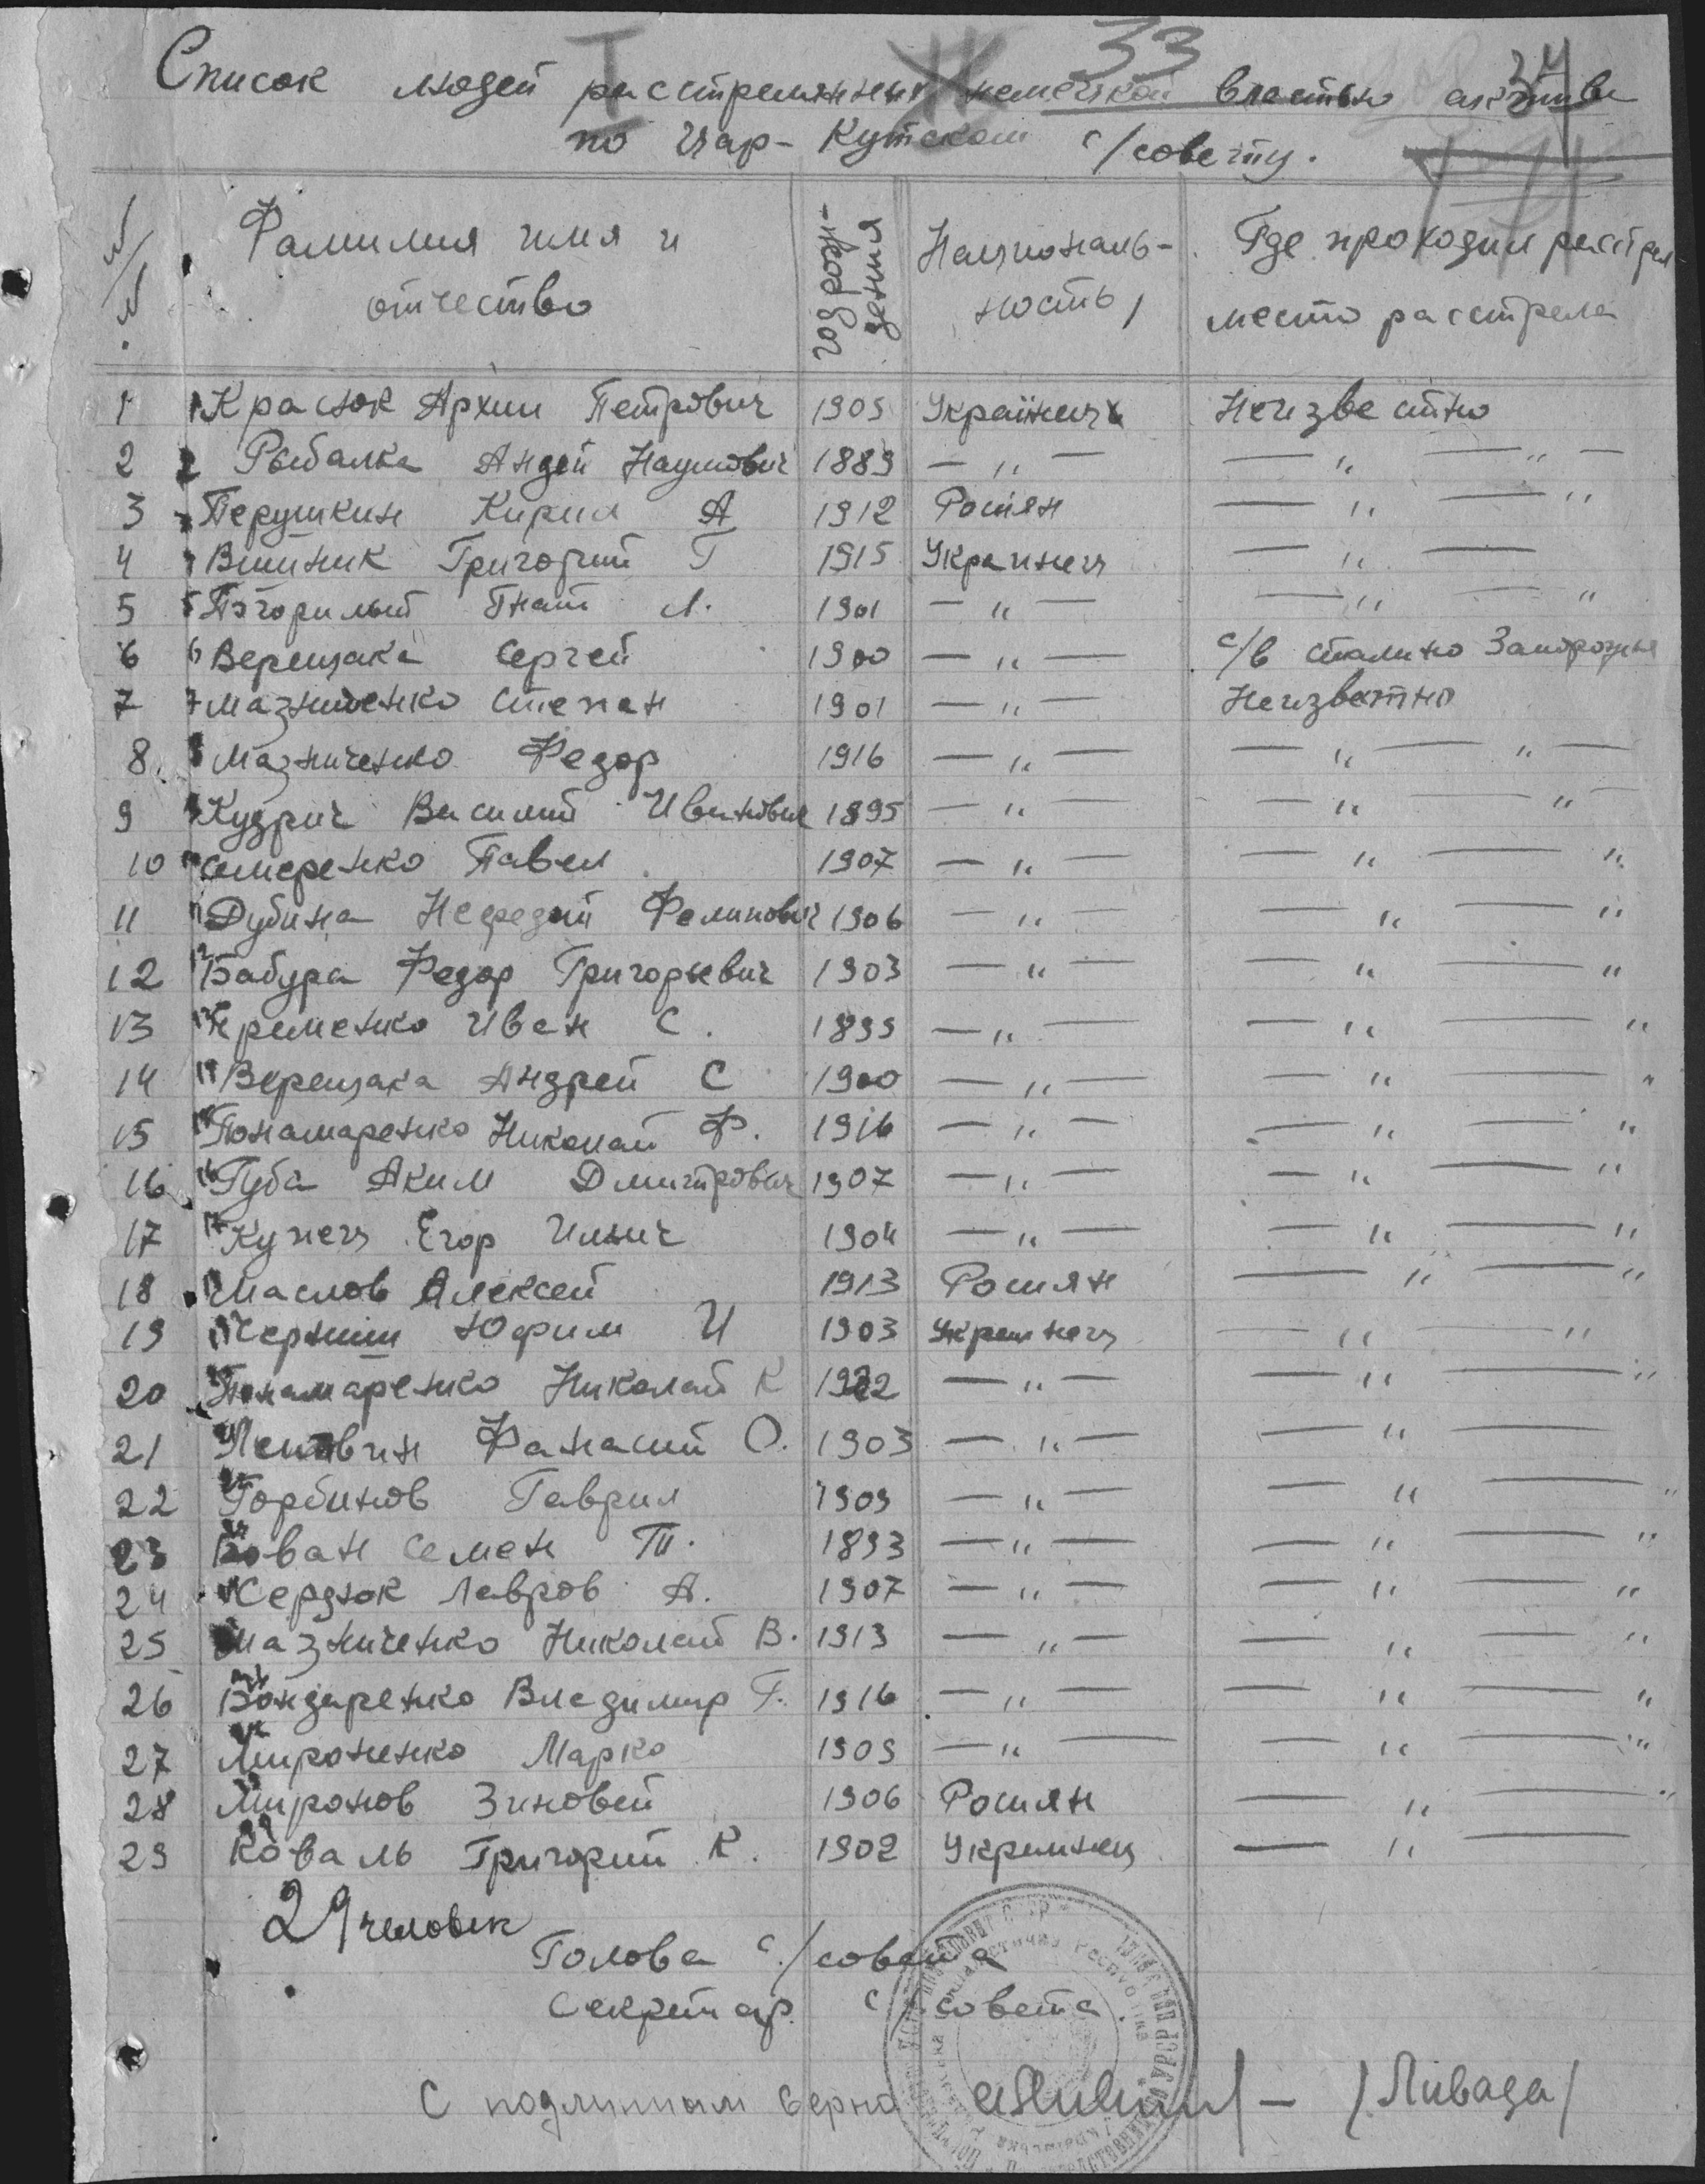 33
34
Список людей расстреляных немецкой властью активе
по Цар-Кутском с/совету.
№/№ Фамилия имя и отчество год рождения Национальность Где проходил расстрел место расстрела
1 1 Краснок Архип Петрович 1905 Українец Неизвестно
2 2 Рыбалка Андей Наумович 1889 — " — — " — " —
3 Перушкин Кирил А 1912 Росиян — " — "
4 Винник Григорий Г 1915 Украинец — " —
5 5 Погорилый Гнат Л. 1901 — " — — " — "
6 6 Верещака Сергей 1900 — " — с/в Сталино Запорожье
7 7 Мазниченко Степан 1901 — " — Неизвестно
8 8 Мазниченко Федор 1916 — " — — " — " —
9 Кудрич Василий Иванович 1895 — " — — " — " —
10 Семеренко Павел 1907 — " — — " — "
11 11 Дубина Филипович 1906 — " — — " — "
12 12 Бабура Федор Григорьевич 1903 — " — — " — "
13 13 Яременко Иван С. 1899 — " — — " — "
14 14 Верещака Андрей С 1900 — " — — " — "
15 15 Понамаренко Николай Ф. 1916 — " — — " — "
16 16 Губа Аким Дмитрович 1907 — " — — " — "
17 17 Купец Егор Ильич 1904 — " — — " — "
18 Маслов Алексей 1913 Росиян — " — "
19 19 Черниш Юфим И 1903 Украинец — " — "
20 Понамаренко Николай К 1922 — " — — " — "
21 Фанасий О. 1903 — " — — " —
22 Горбинов Гаврил 1909 — " — — " — "
23 Кован Семен Т. 1893 — " — — " — "
24 Сердюк Лавров А. 1907 — " — — " — "
25 Мазниченко Николай В. 1913 — " — — " — "
26 Бондаренко Владимир Г. 1916 — " — — " — "
27 Мироненко Марко 1909 — " — — " — "
28 Миронов Зиновей 1906 Росиян — " — "
29 Коваль Григорий К. 1902 Украинец — " —
29 человек
Голова с/совета
Секретар с/совета
С подлинным верно — /Ливада/